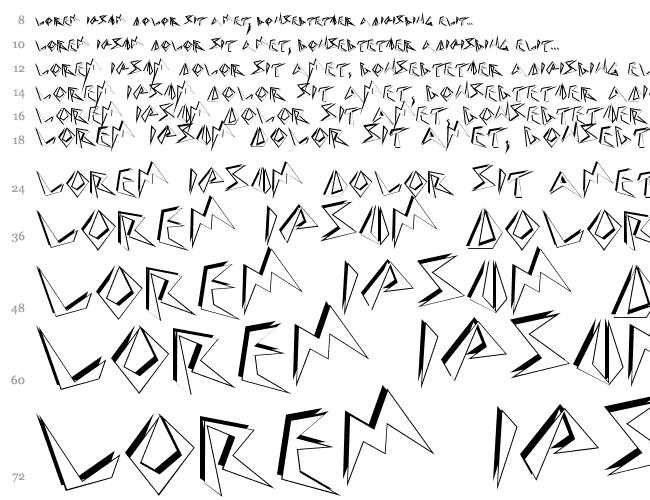 8 LOREM IPSUM DOLOR SIT AMET, CONSECTETUER ADIPISCING ELIT...
10 LOREM IPSUM DOLOR SIT AMET, CONSECTETUER ADIPISCING ELIT...
12 LOREM IPSUM DOLOR SIT AMET, CONSECTETUER ADIPISCING EL
14 LOREM IPSUM DOLOR SIT AMET, CONSECTETUER ADI
16 LOREM IPSUM DOLOR SIT AMET, CONSECTETUER
18 LOREM IPSUM DOLOR SIT AMET, CONSECT
24 LOREM IPSUM DOLOR SIT AMET
36 LOREM IPSUM DOLOR
48 LOREM IPSUM D
60 LOREM IPSUM
72 LOREM IPS